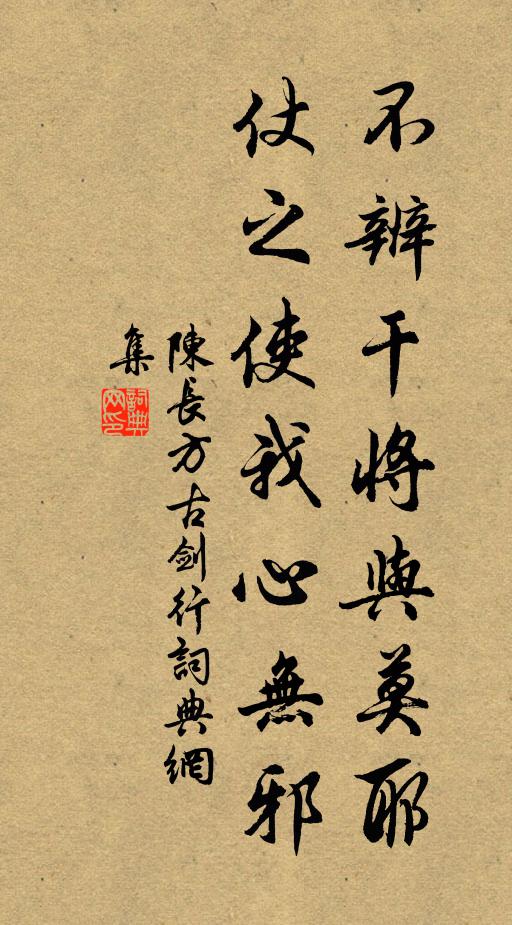 不辨干將與莫耶
仗之使我心無邪
陳長方古劍行詞典網
集
詞典
网印